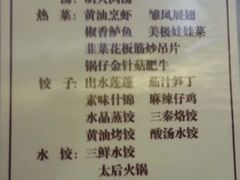 热 菜: 黄油烹虾 雏凤展翅
椒香鲈鱼 美极娃娃菜
韭菜花板筋炒吊片
锅仔金针菇肥牛
饺 子: 出水莲蓬 茄汁笋丁
素味什锦 麻辣仔鸡
水晶蒸饺 三秦烙饺
黄油烤饺 酸汤水饺
水 饺: 三鲜水饺
太后火锅